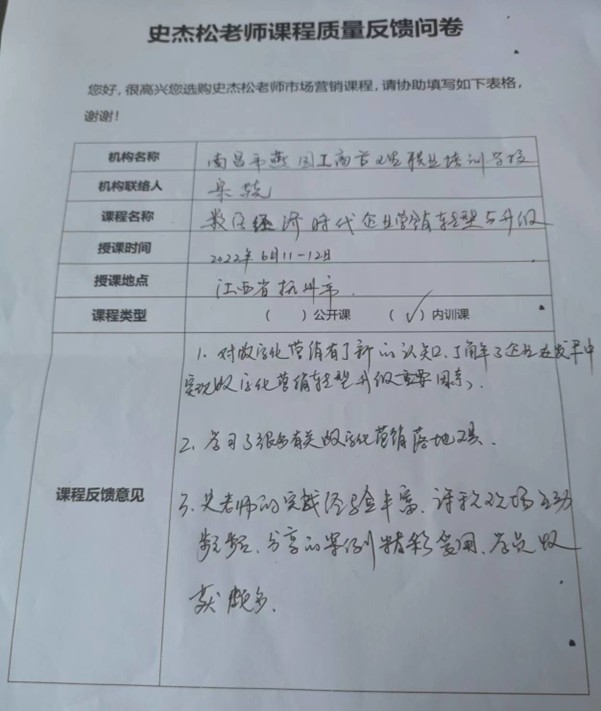 史杰松老师课程质量反馈问卷
您好,很高兴您选购史杰松老师市场营销课程,请协助填写如下表格,
谢谢!
机构名称 南昌市燕园工商管理职业培训学校
机构联络人
课程名称 数字经济时代企业营销转型与升级
授课时间 2022年6月11-12日
授课地点 江西省抚州市.
课程类型 ( )公开课 (✓)内训课
1. 对数字化营销有了新的认知,了解了企业在发展中
实现数字化营销转型升级重要因素;
课程反馈意见
2. 学习了很多有关数字化营销落地工具.
3. 史老师的实战经验丰富,课程现场互动
分享的案例精彩实用,学员收
获颇多.